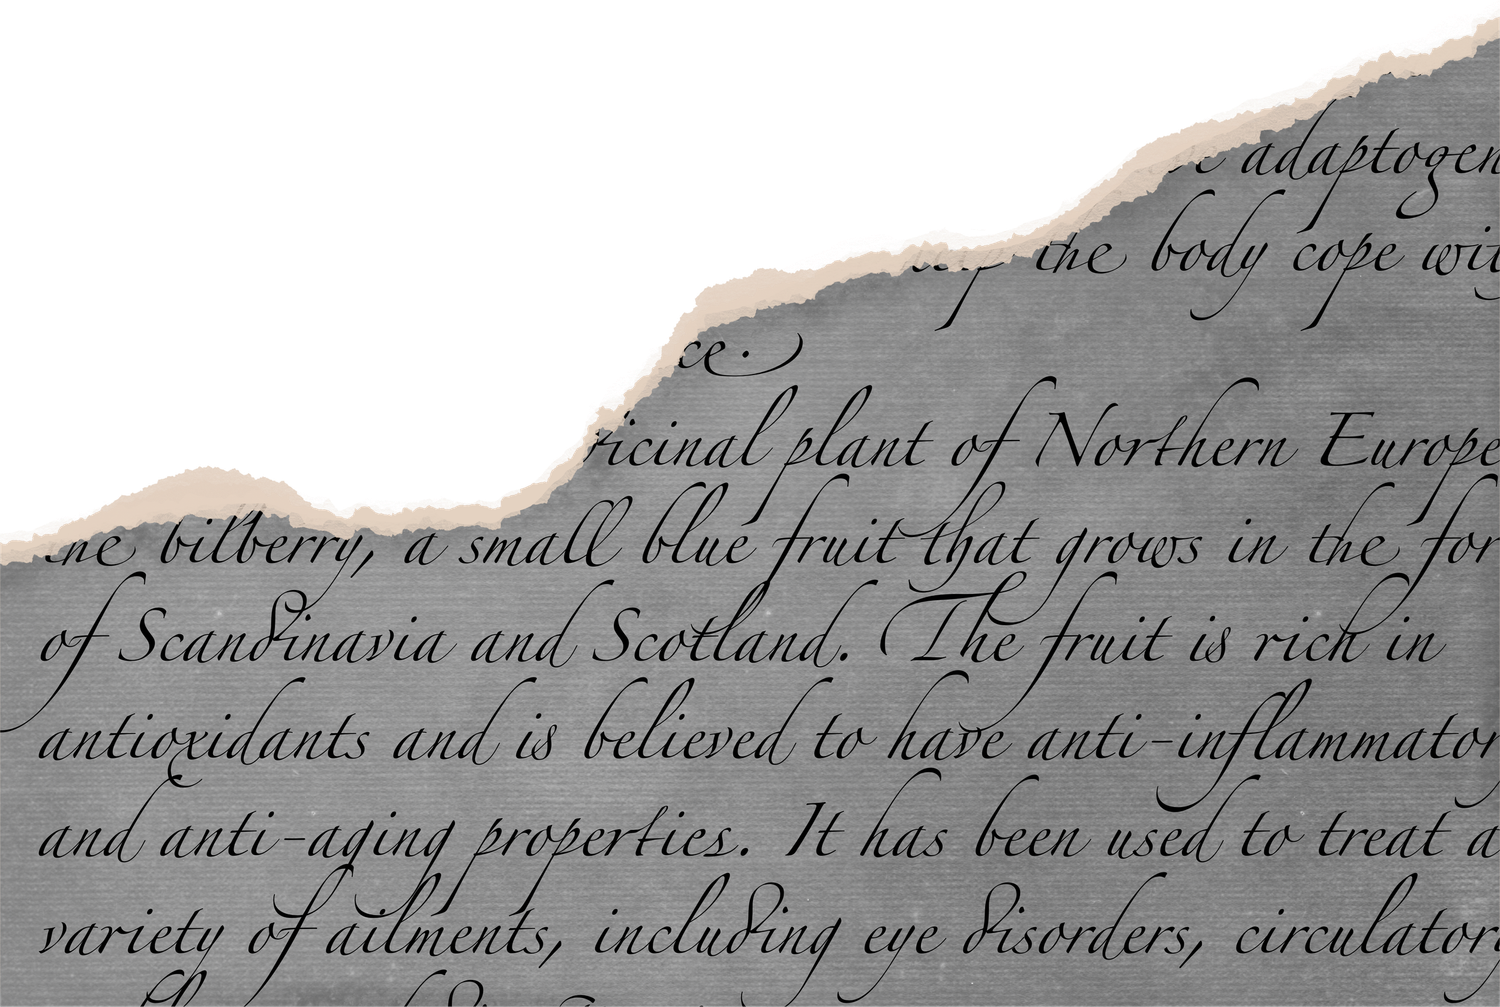 adaptogen
the body cope wit
ce.
icinal plant of Northern Europe
ne bilberry, a small blue fruit that grows in the for
of Scandinavia and Scotland. The fruit is rich in
antioxidants and is believed to have anti-inflammator
and anti-aging properties. It has been used to treat a
variety of ailments, including eye disorders, circulatory